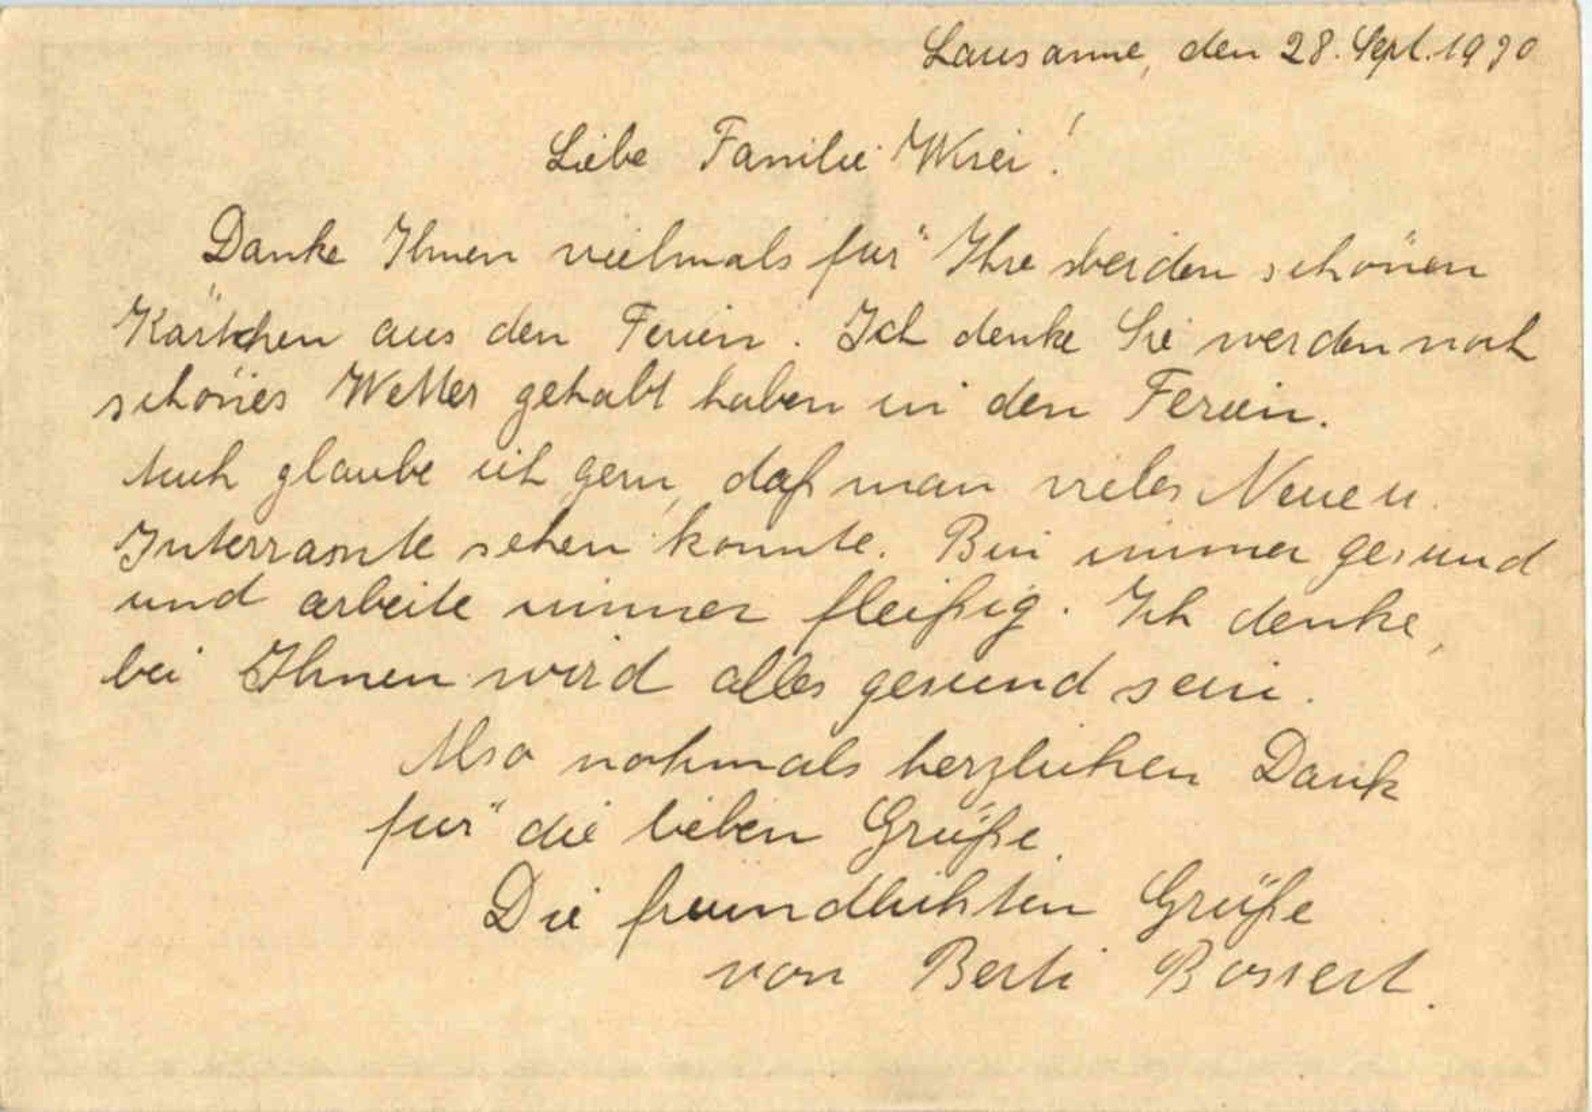 Lausanne, den 28. Sept. 1930
Liebe Familie
Danke Ihnen vielmals für Ihre beiden schönen
Kärtchen aus den Ferien. Ich denke Sie werden noch
schönes Wetter gehabt haben in den Ferien.
Auch glaube ich gern, daß man vieles Neue u.
Interrasnte sehen konnte. Bin immer gesund
und arbeite immer fleißig. Ich denke,
bei Ihnen wird alles gesund sein.
Also nohmals herzlichen Dank
für die lieben Grüße.
Die freundlichsten Grüße
von Berti Bossert.